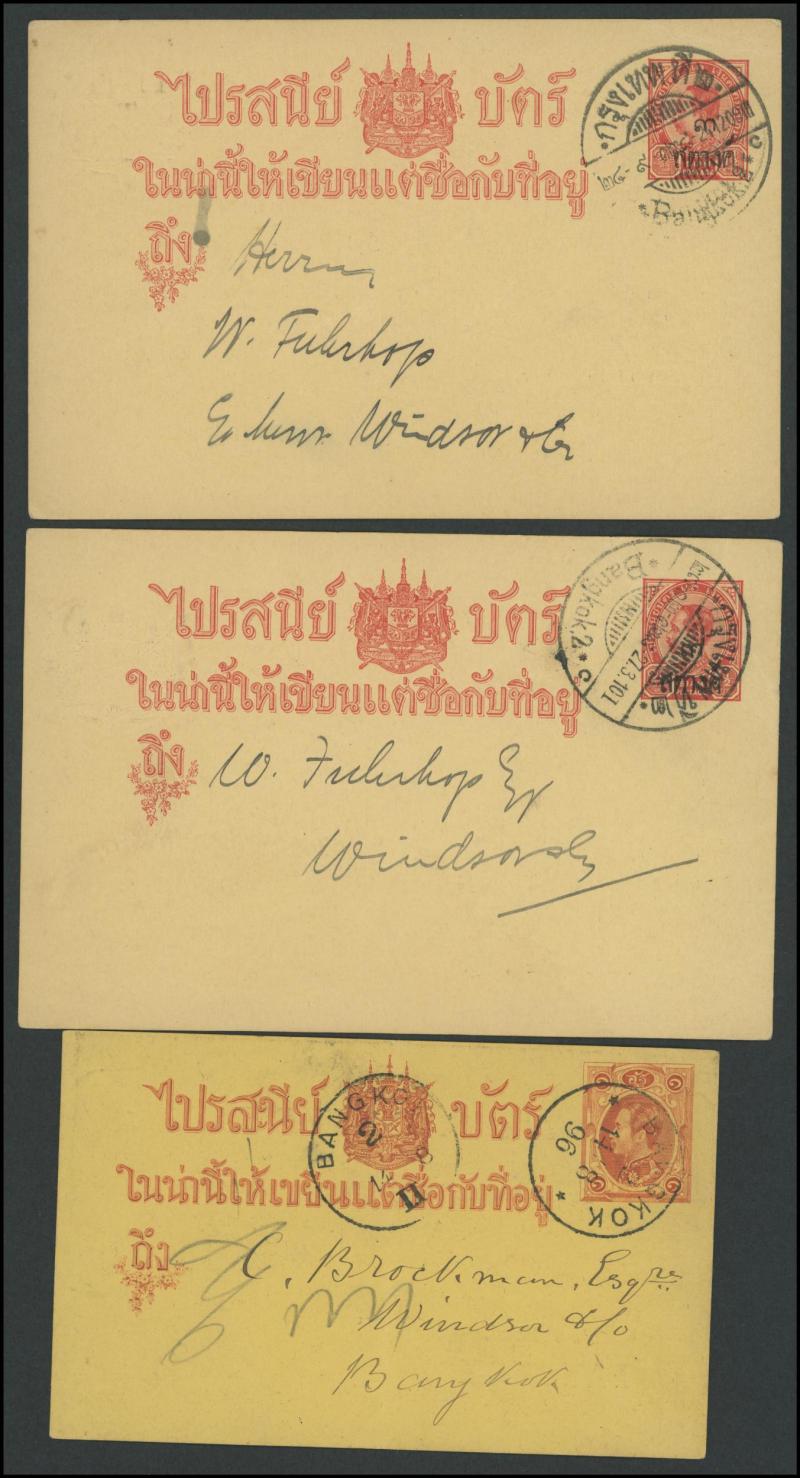 ไปรสนีย์ บัตร์
ในน่านี้ให้เขียนแต่ชื่อกับที่อยู่
ถึง
Bangkok
Herrn
W. Fulerhop
Windsor & Co
ไปรสนีย์ บัตร์
ในน่านี้ให้เขียนแต่ชื่อกับที่อยู่
ถึง
Bangkok.2
27.3.101
W. Fulerhop Esq
Windsor & Co
ไปรสนีย์ บัตร์
ในน่านี้ให้เขยีนแต่ชื่อกับที่อยู่
ถึง
BANGKO
2
BANGKOK
14
8
96
C. Brockman, Esqre
Windsor & Co
Bangkok